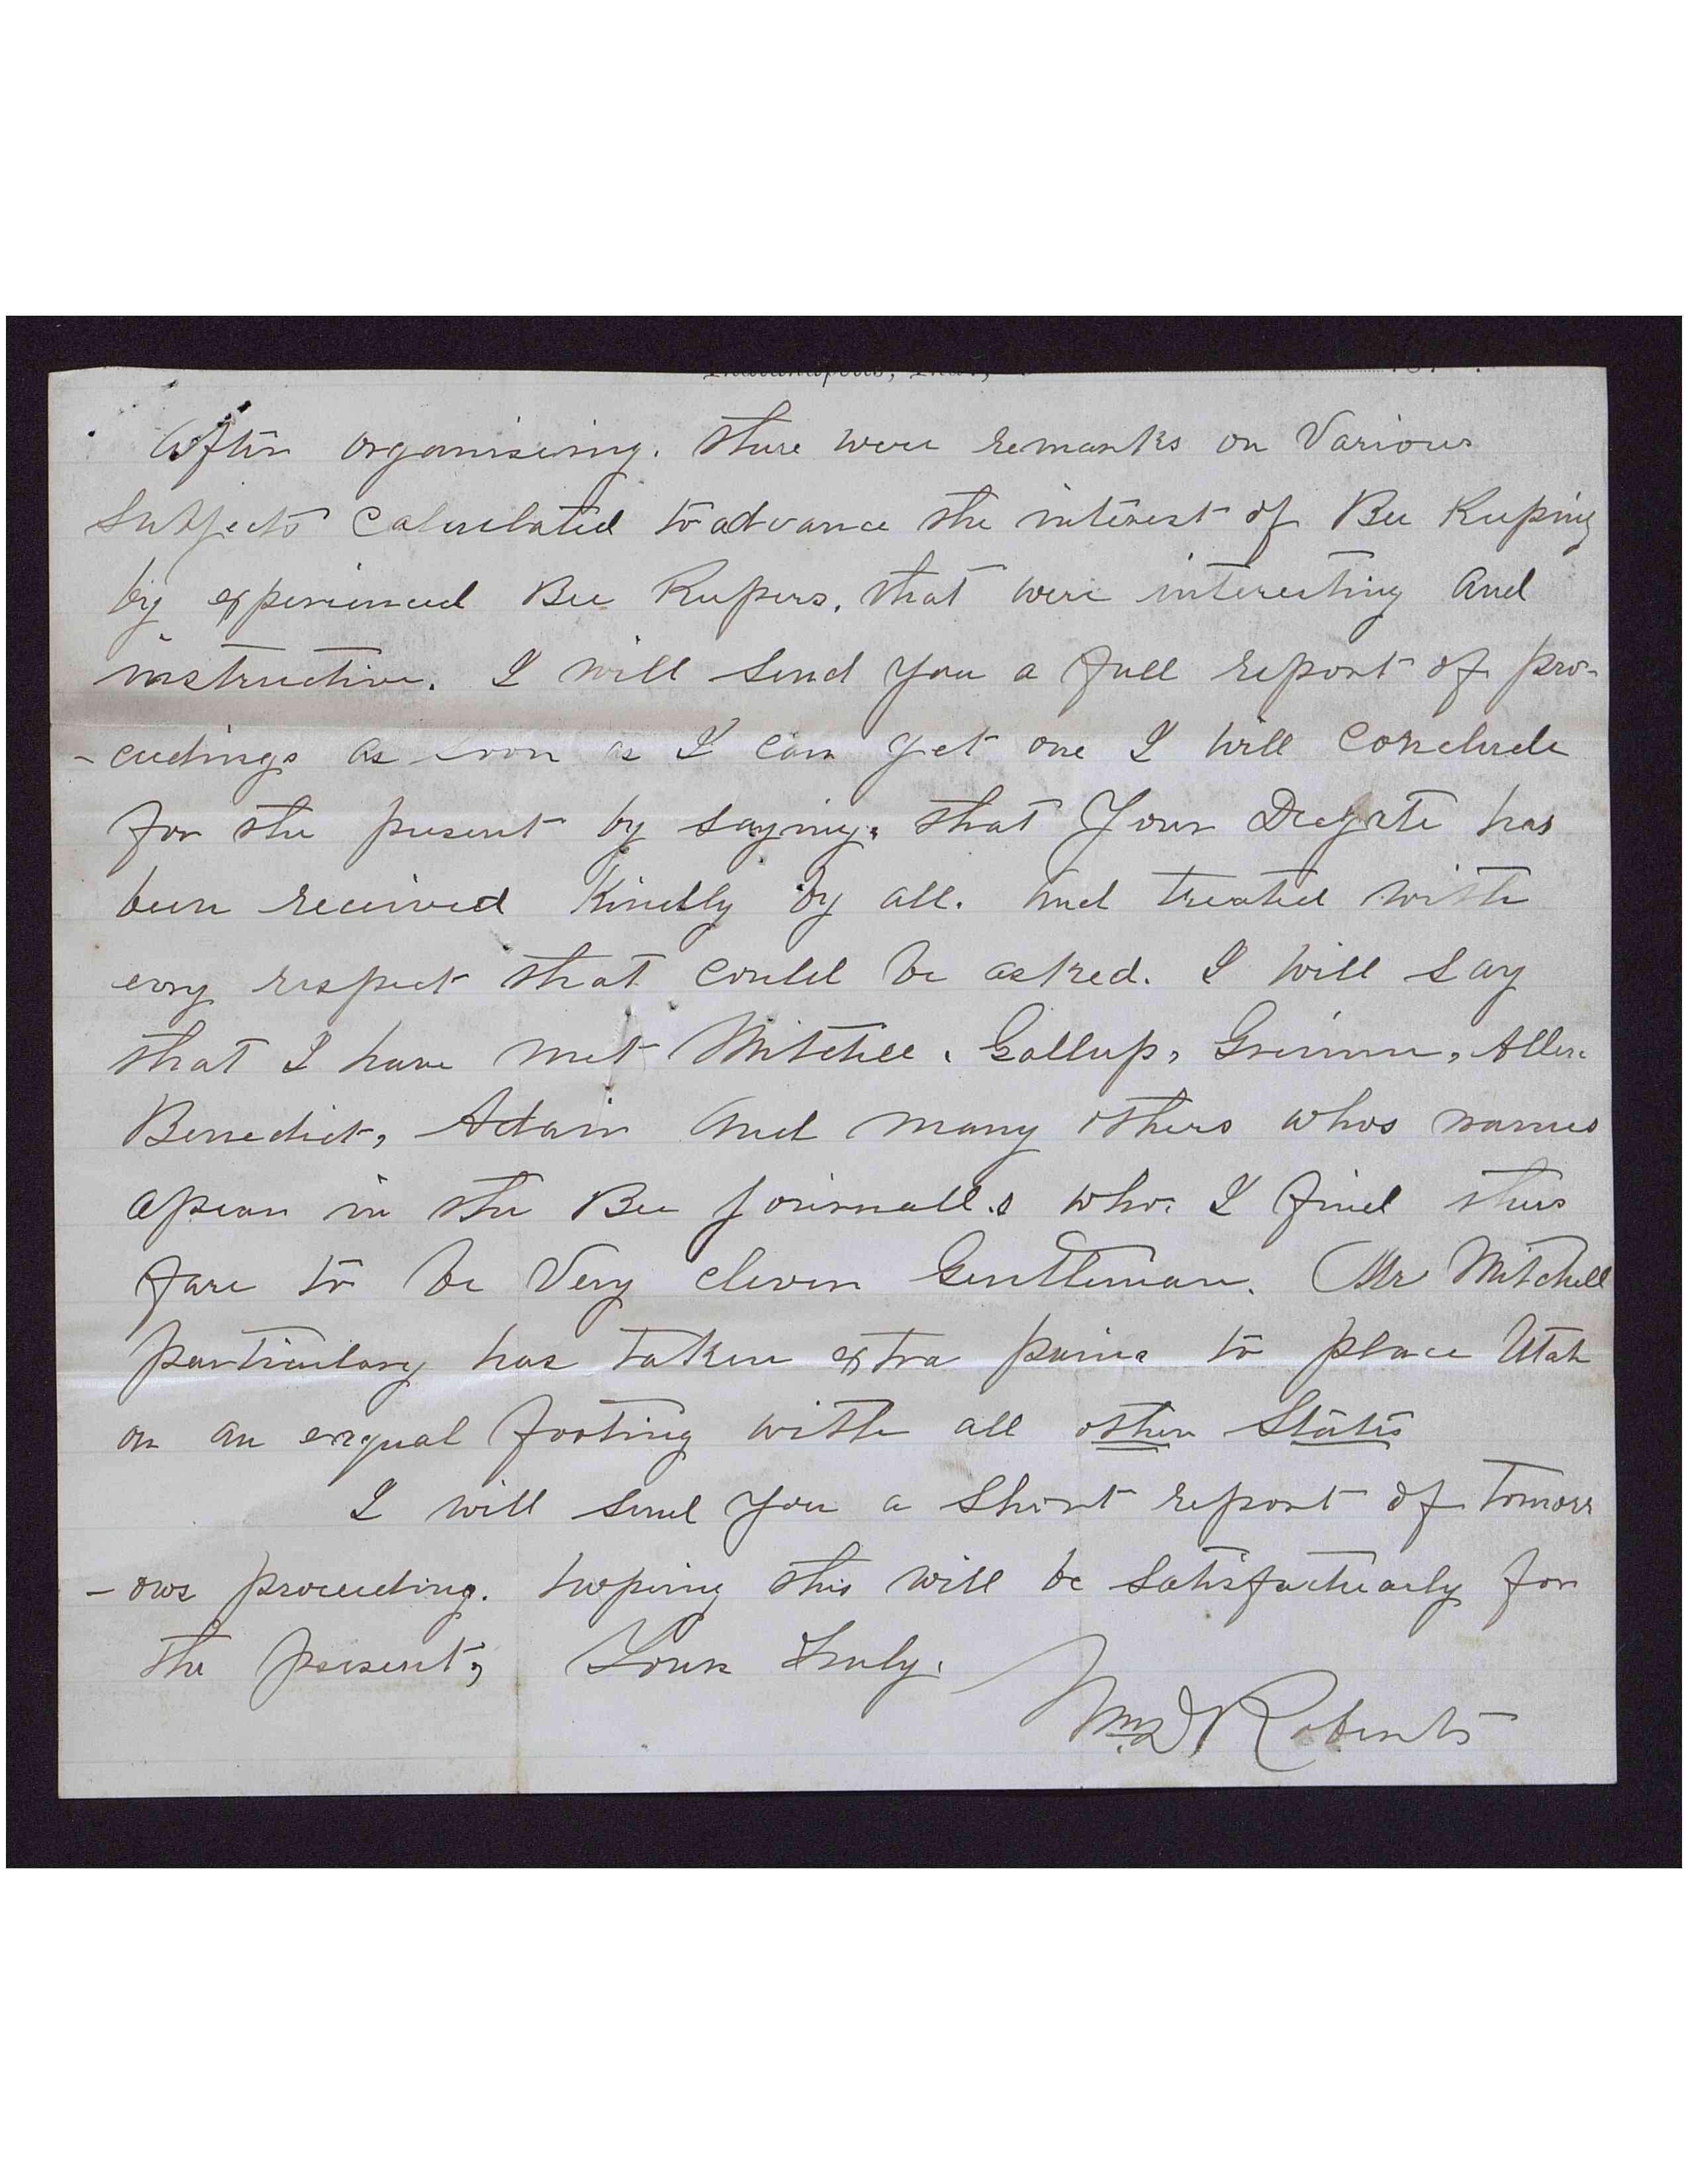 Indianapolis, Ind.,
After organiseing. there were remarks on Various
Subjects Calculated to advance the interest of Bee Keeping
by experienced Bee Keepers, that were interesting and
instructive. I will send you a full report of pro-
-ceedings as soon as I can get one I will conclude
for the present by saying, that Your Degate has
been received Kindly by all. and treated with
evry respect that could be asked. I will say
that I have met Mitchell, Gallup, Grimm, Allen
Benedict, Adair and many others whos names
apear in the Bee Journalls who I find thus
fare to be Very clever Gentleman. Mr Mitchell
particulary has taken extra pains to place Utah
on an erqual footing with all other States
I will send you a Short report of tomorr
-ows proceeding. hoping this will be Satisfactuarly for
the present, Yours Truly,
Wm D Roberts